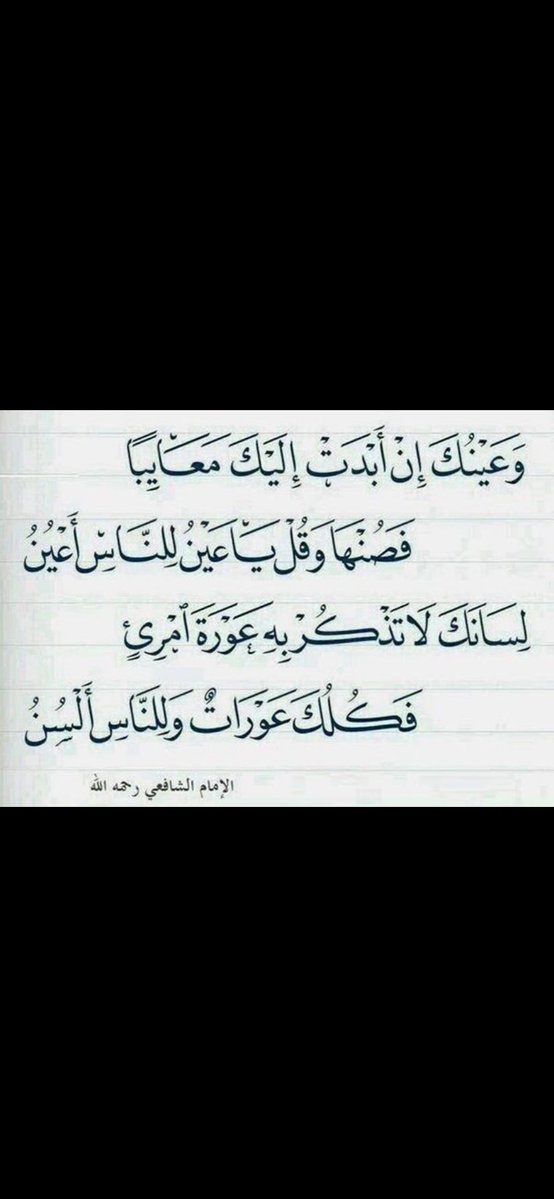 وَعَيْنُكَ إِنْ أَبْدَتْ إِلَيْكَ مَعَايِبًا
فَصُنْهَا وَقُلْ يَا عَيْنُ لِلنَّاسِ أَعْيُنُ
لِسَانَكَ لَا تَذْكُرْ بِهِ عَوْرَةَ ٱمْرِئٍ
فَكُلُّكَ عَوْرَاتٌ وَلِلنَّاسِ أَلْسِنُ
الإمام الشافعي رحمه الله